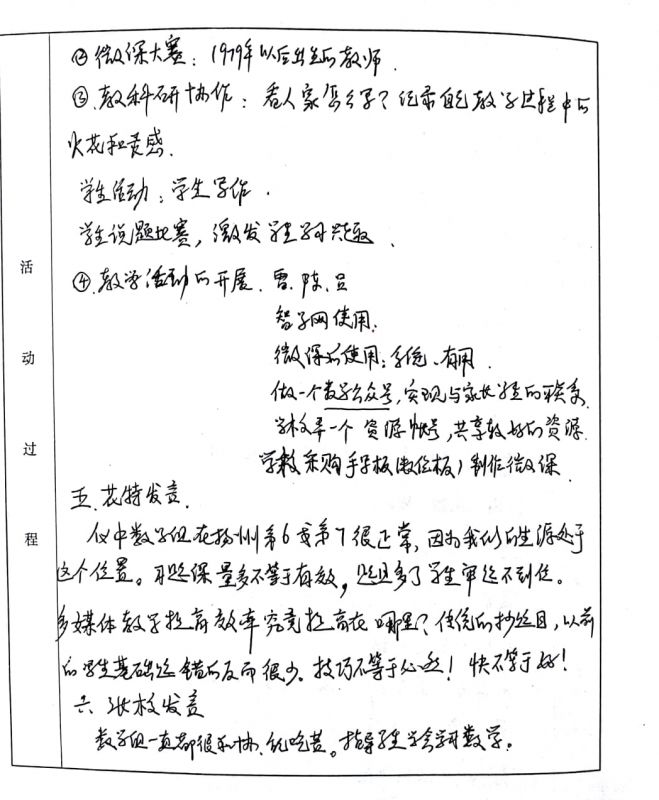 ②微课大赛：1979年以后出生的教师．
③.教科研协作：看人家怎么写？记录自己教学过程中的
火花和灵感．
学生活动：学生写作．
学生说题比赛，激发学生学习兴趣．
④.教学活动的开展．曹、陈、吕
智学网使用．
微课的使用：系统、有用．
做一个数学公众号，实现与家长学生的联系．
学校弄一个资源帐号，共享较好的资源．
学校采购手写板(数位板)制作微课．
五.花特发言．
仪中数学组在扬州第6或第7很正常，因为我们的生源处于
这个位置。习题课量多不等于有效，题目多了学生审题不到位。
多媒体教学提高效率究竟提高在哪里？传统的抄题目，以前
的学生基础题错的反而很少。技巧不等于必然！快不等于好！
六、张校发言
数学组一直都很和协、能吃苦。指导学生学会学习数学。
活
动
过
程